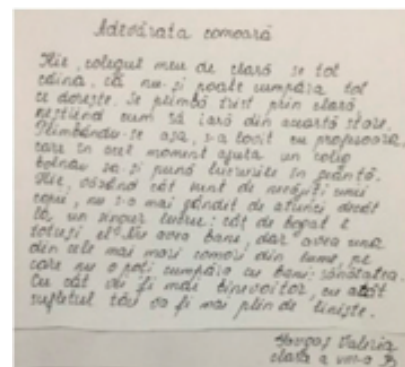 Adevărata comoară
Ilie, colegul meu de clasă se tot
căina, că nu-și poate cumpăra tot
ce dorește. Se plimbă trist prin clasă
neștiind cum să iasă din această stare.
Plimbându-se așa, s-a lovit cu profesoara,
care în acel moment ajuta un coleg
bolnav să-și pună lucrurile în geantă.
Ilie, văzând cât sunt de necăjiți unii
copii, nu s-a mai gândit de atunci decât
la un singur lucru: cât de bogat e
totuși el. Nu avea bani, dar avea una
din cele mai mari comori din lume, pe
care nu o poți cumpăra cu bani: sănătatea.
Cu cât vei fi mai binevoitor, cu atât
sufletul tău va fi mai plin de liniște.
Valeria
clasa a VIII-a B